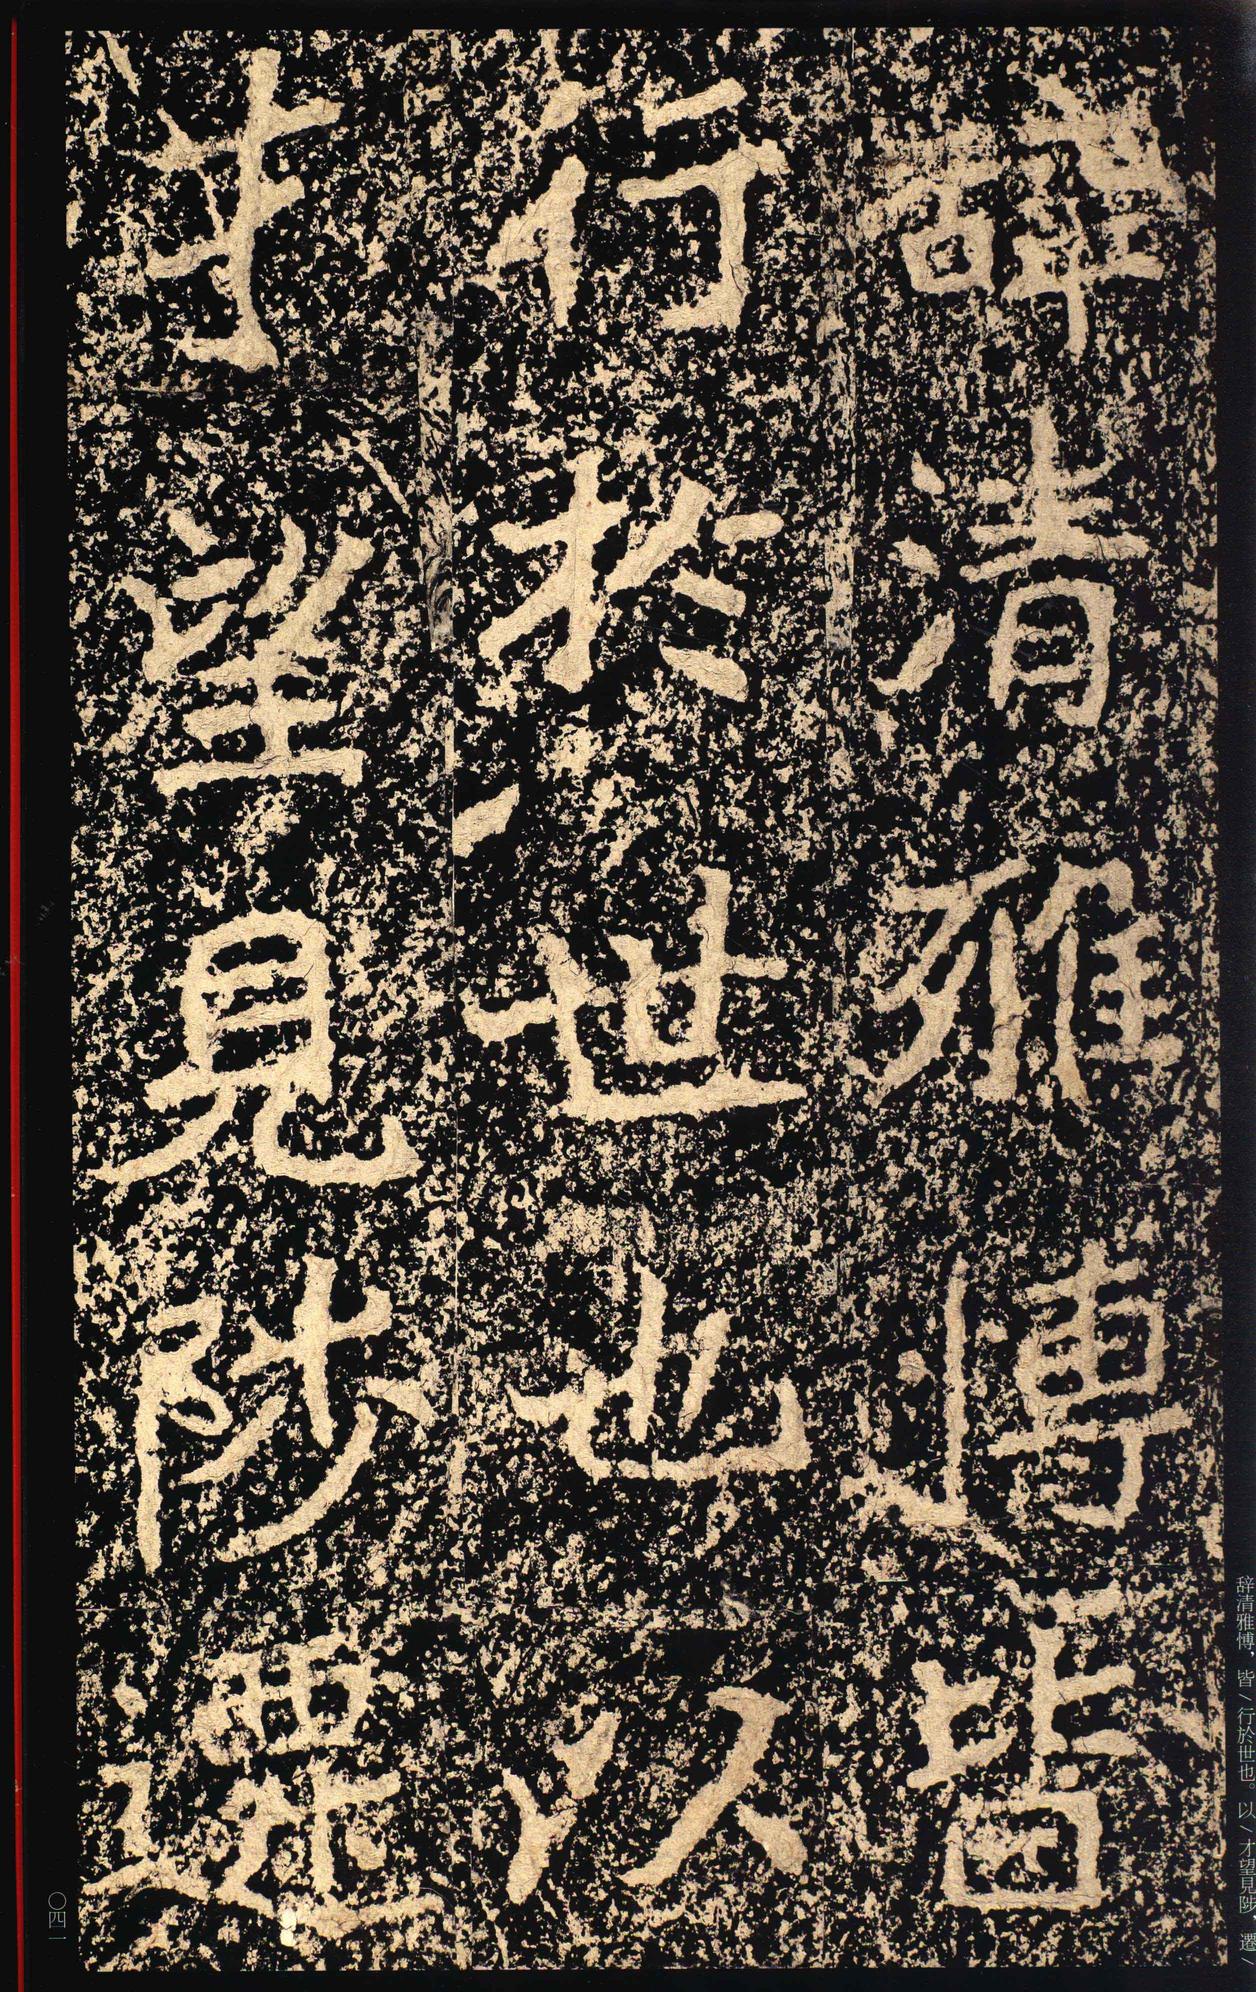 辞清雅博皆
行於世也以
才望見陟遷
辞清雅博，皆／行於世也。以／才望見陟，遷／
〇四一